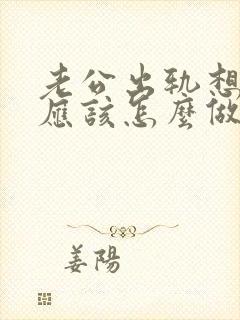 老公出轨想
应该怎麼做
姜陽